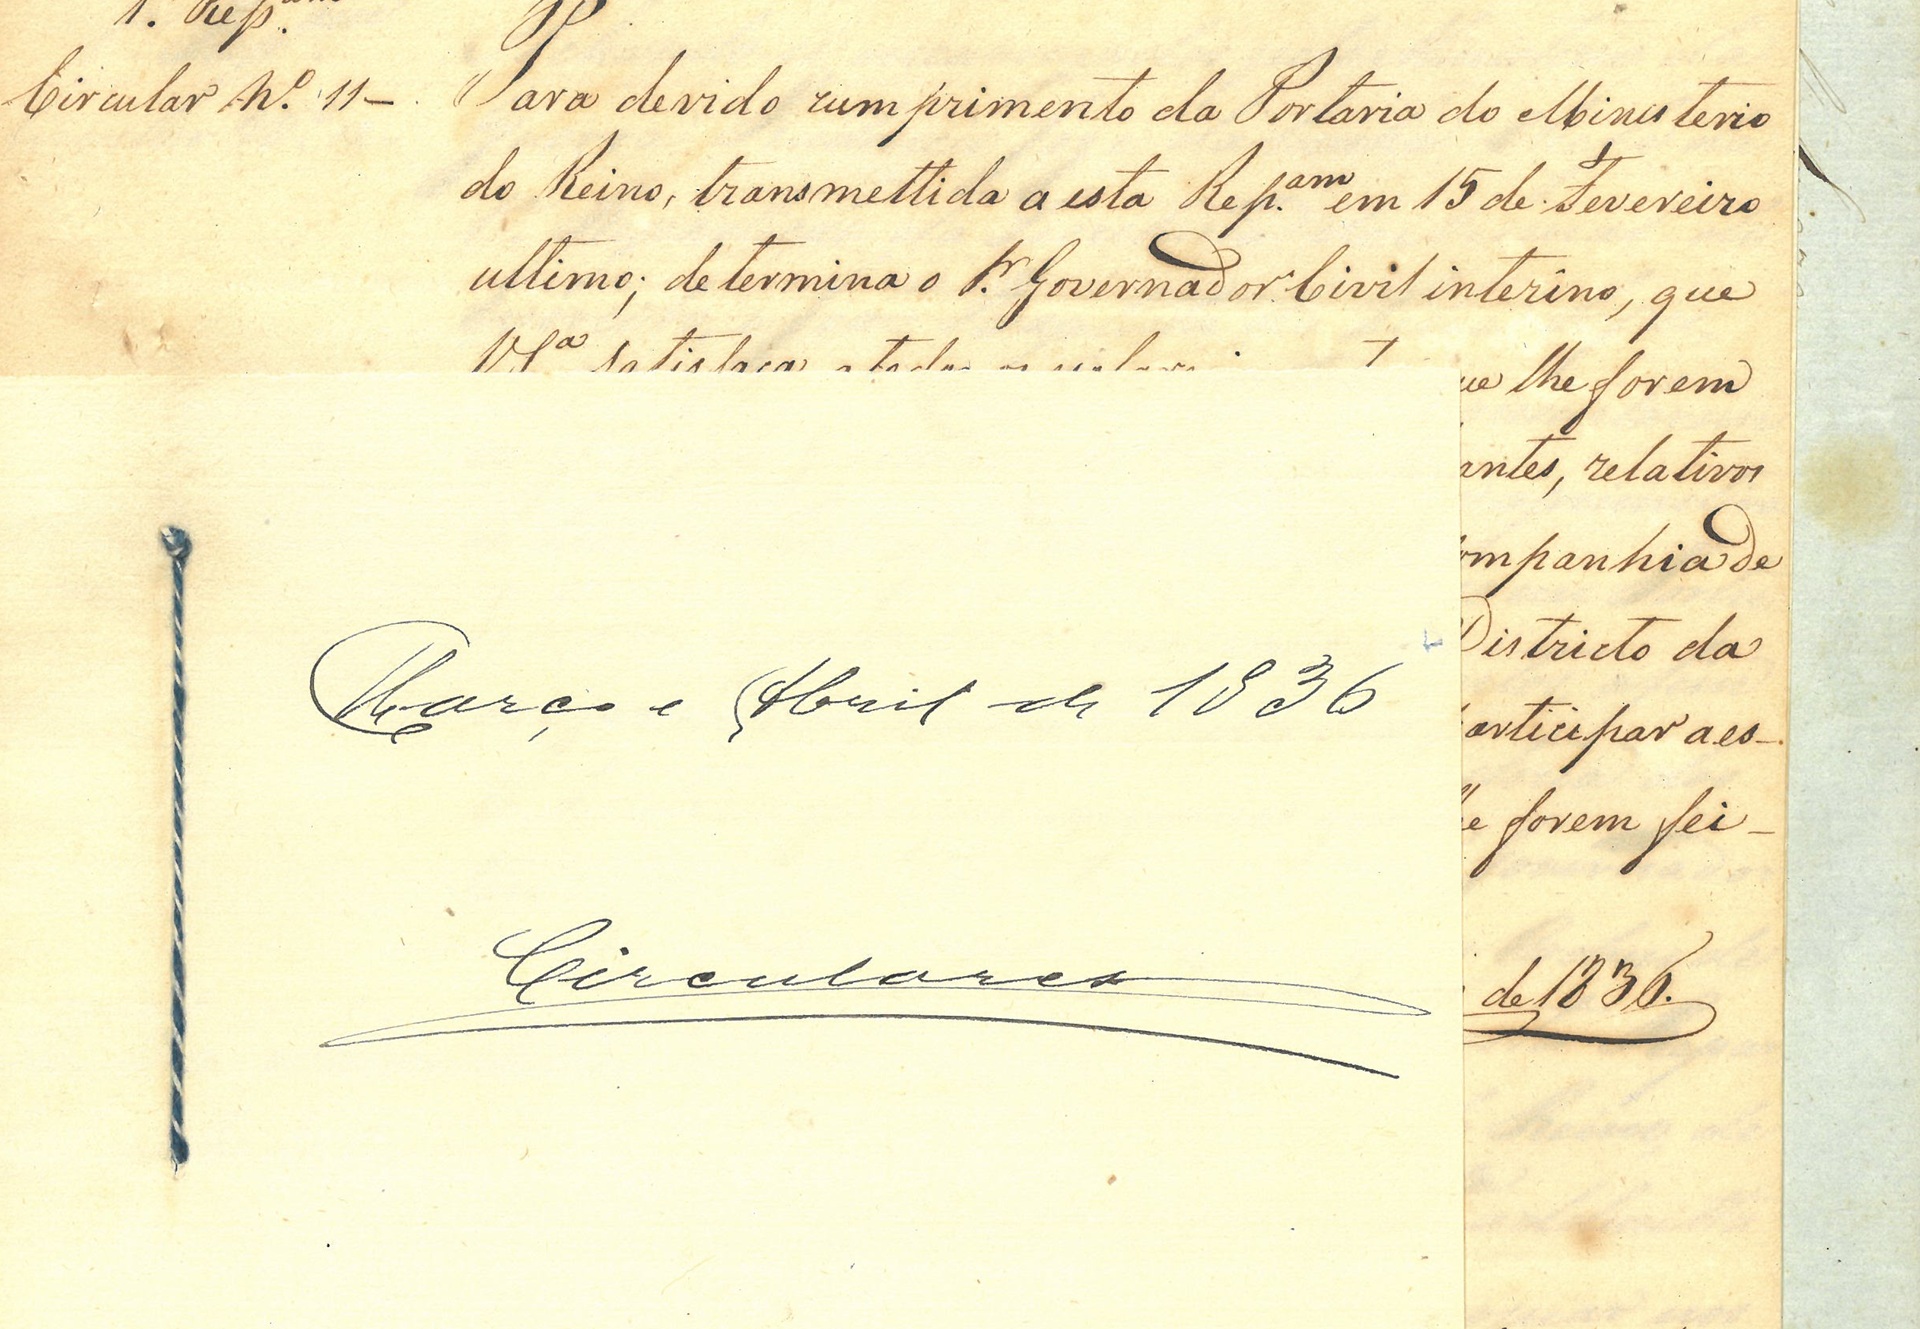 1.ª Rep.am
Circular N.º 11 -
Para devido cumprimento da Portaria do Ministerio
do Reino, transmettida a esta Rep.am em 15 de Fevereiro
ultimo; determina o Sr. Governador Civil interino, que
VSª satisfaça a todos os
que lhe forem
antes, relativos
ompanhia de
Districto da
articipar a es-
lhe forem fei-
de 1836.
Março e Abril de 1836
Circulares